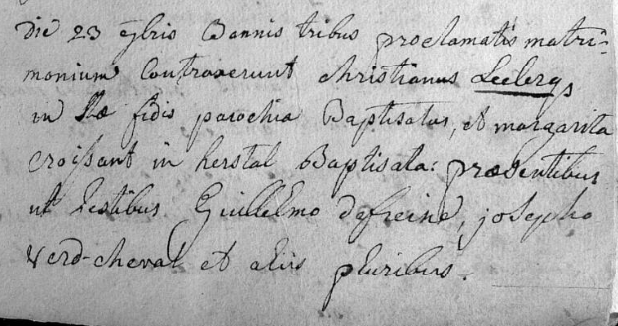 Die 23 9bris Bannis tribus proclamatis matri-
monium Contraxerunt christianus Leclercq,
in Stæ fidis parochia Baptisatus, et margarita
croissant in herstal Baptisata: præsentibus
ut testibus Guillelmo defreine, josepho
Verd-cheval et aliis pluribus.